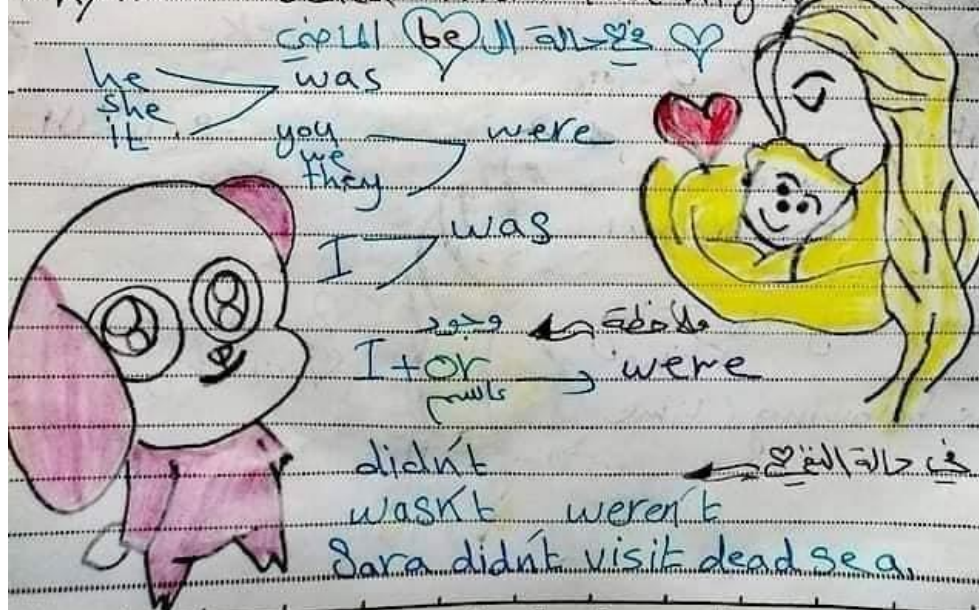 في حالة ال be الماضي
he was
she
it
you were
we
they
I was
ملاحظة وجود
I + or were
في حالة النفي
didn't
wasn't weren't
Sara didn't visit dead sea.